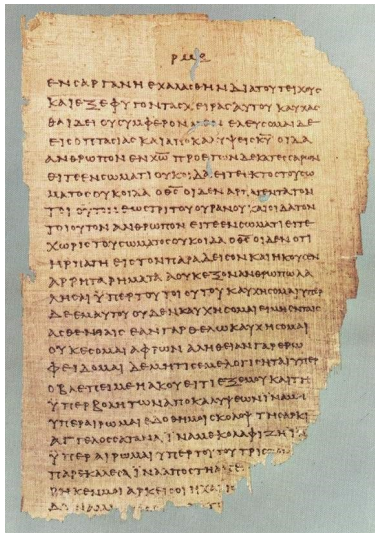 ΕΝϹΑΡΓΑΝΗΕΧΑΛΑϹΘΗΝΔΙΑΤΟΥΤΕΙΧΟΥϹ
ΚΑΙΕΞΕΦΥΓΟΝΤΑϹΧΕΙΡΑϹΑΥΤΟΥΚΑΥΧΑϹ
ΘΑΙΔΕΙΟΥϹΥΜΦΕΡΟΝΜΕΝΕΛΕΥϹΟΜΑΙΔΕ
ΕΙϹΟΠΤΑϹΙΑϹΚΑΙΑΠΟΚΑΛΥΨΕΙϹΚ̅Υ̅ΟΙΔΑ
ΑΝΘΡΩΠΟΝΕΝΧ̅Ω̅ΠΡΟΕΤΩΝΔΕΚΑΤΕϹϹΑΡΩΝ
ΕΙΤΕΕΝϹΩΜΑΤΙΟΥΚΟΙΔΑΕΙΤΕΕΚΤΟϹΤΟΥϹΩ
ΜΑΤΟϹΟΥΚΟΙΔΑΟΘ̅Ϲ̅ΟΙΔΕΝΑΡΠΑΓΕΝΤΑΤΟΝ
ΤΟΙΟΥΤΟΝΕΩϹΤΡΙΤΟΥΟΥΡΑΝΟΥΚΑΙΟΙΔΑΤΟΝ
ΤΟΙΟΥΤΟΝΑΝΘΡΩΠΟΝΕΙΤΕΕΝϹΩΜΑΤΙΕΙΤΕ
ΧΩΡΙϹΤΟΥϹΩΜΑΤΟϹΟΥΚΟΙΔΑΟΘ̅Ϲ̅ΟΙΔΕΝΟΤΙ
ΗΡΠΑΓΗΕΙϹΤΟΝΠΑΡΑΔΕΙϹΟΝΚΑΙΗΚΟΥϹΕΝ
ΑΡΡΗΤΑΡΗΜΑΤΑΑΟΥΚΕΞΟΝΑΝΘΡΩΠΩΛΑ
ΛΗϹΑΙΫΠΕΡΤΟΥΤΟΙΟΥΤΟΥΚΑΥΧΗϹΟΜΑΙΥΠΕΡ
ΔΕΕΜΑΥΤΟΥΟΥΔΕΝΚΑΥΧΗϹΟΜΑΙΕΙΜΗΕΝΤΑΙϹ
ΑϹΘΕΝΕΙΑΙϹΕΑΝΓΑΡΘΕΛΩΚΑΥΧΗϹΟΜΑΙ
ΟΥΚΕϹΟΜΑΙΑΦΡΩΝΑΛΗΘΕΙΑΝΓΑΡΕΡΩ
ΦΕΙΔΟΜΑΙΔΕΜΗΤΙϹΕΜΕΛΟΓΙϹΗΤΑΙΥΠΕΡ
ΟΒΛΕΠΕΙΜΕΗΑΚΟΥΕΙΤΙΕΞΕΜΟΥΚΑΙΤΗ
ΫΠΕΡΒΟΛΗΤΩΝΑΠΟΚΑΛΥΨΕΩΝΙΝΑΜΗ
ΥΠΕΡΑΙΡΩΜΑΙΕΔΟΘΗΜΟΙϹΚΟΛΟΨΤΗϹΑΡΚΙ
ΑΓΓΕΛΟϹϹΑΤΑΝΑΙΝΑΜΕΚΟΛΑΦΙΖΗΙ
ΫΠΕΡΑΙΡΩΜΑΙΥΠΕΡΤΟΥΤΟΥΤΡΙϹ
ΠΑΡΕΚΑΛΕϹΑΙΝΑΑΠΟϹΤΗ
ΚΕΝΜΟΙΑΡΚΕΙϹΟΙΗΧΑΡΙϹ